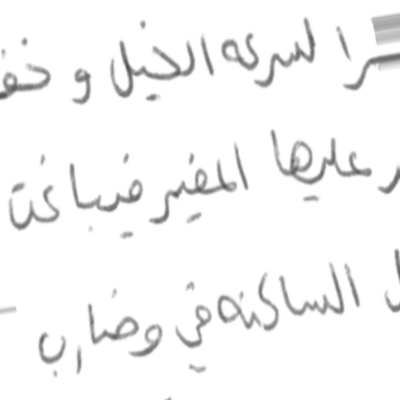 السرعه الخيل و خف
عليها المغير فيباغت
الساكنه في وضارب